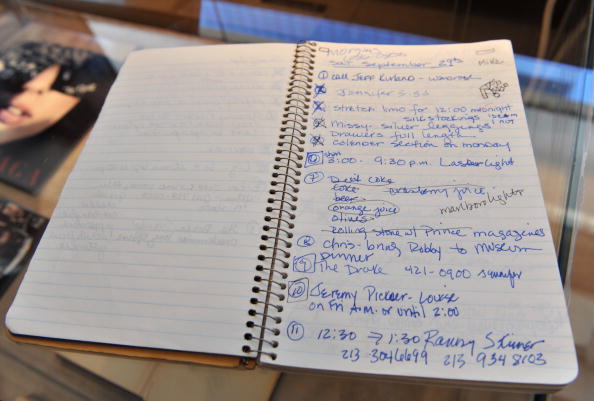 Sat September 29th
Mike
① Call Jeff Kurland - wardrobe
Jennifer's
stretch limo for 12:00 midnight
silk stockings - seam
not
Missy - silver leggings
Drawers full length
calender section on monday
⑥ 3:00 - 9:30 p.m. Laster light
⑦ Diet coke
coke cranberry juice
beer
orange juice marlboro lights
olives
Rolling stone w/ Prince magazines
⑧ Chris - bring Robby to Museum
⑨ Dinner
The Drake 421-0900
⑩ Jeremy Louise
on Fri A.M. or until 2:00
⑪ 12:30 → 1:30 Randy Skinner
213 3046699 213 934 8103